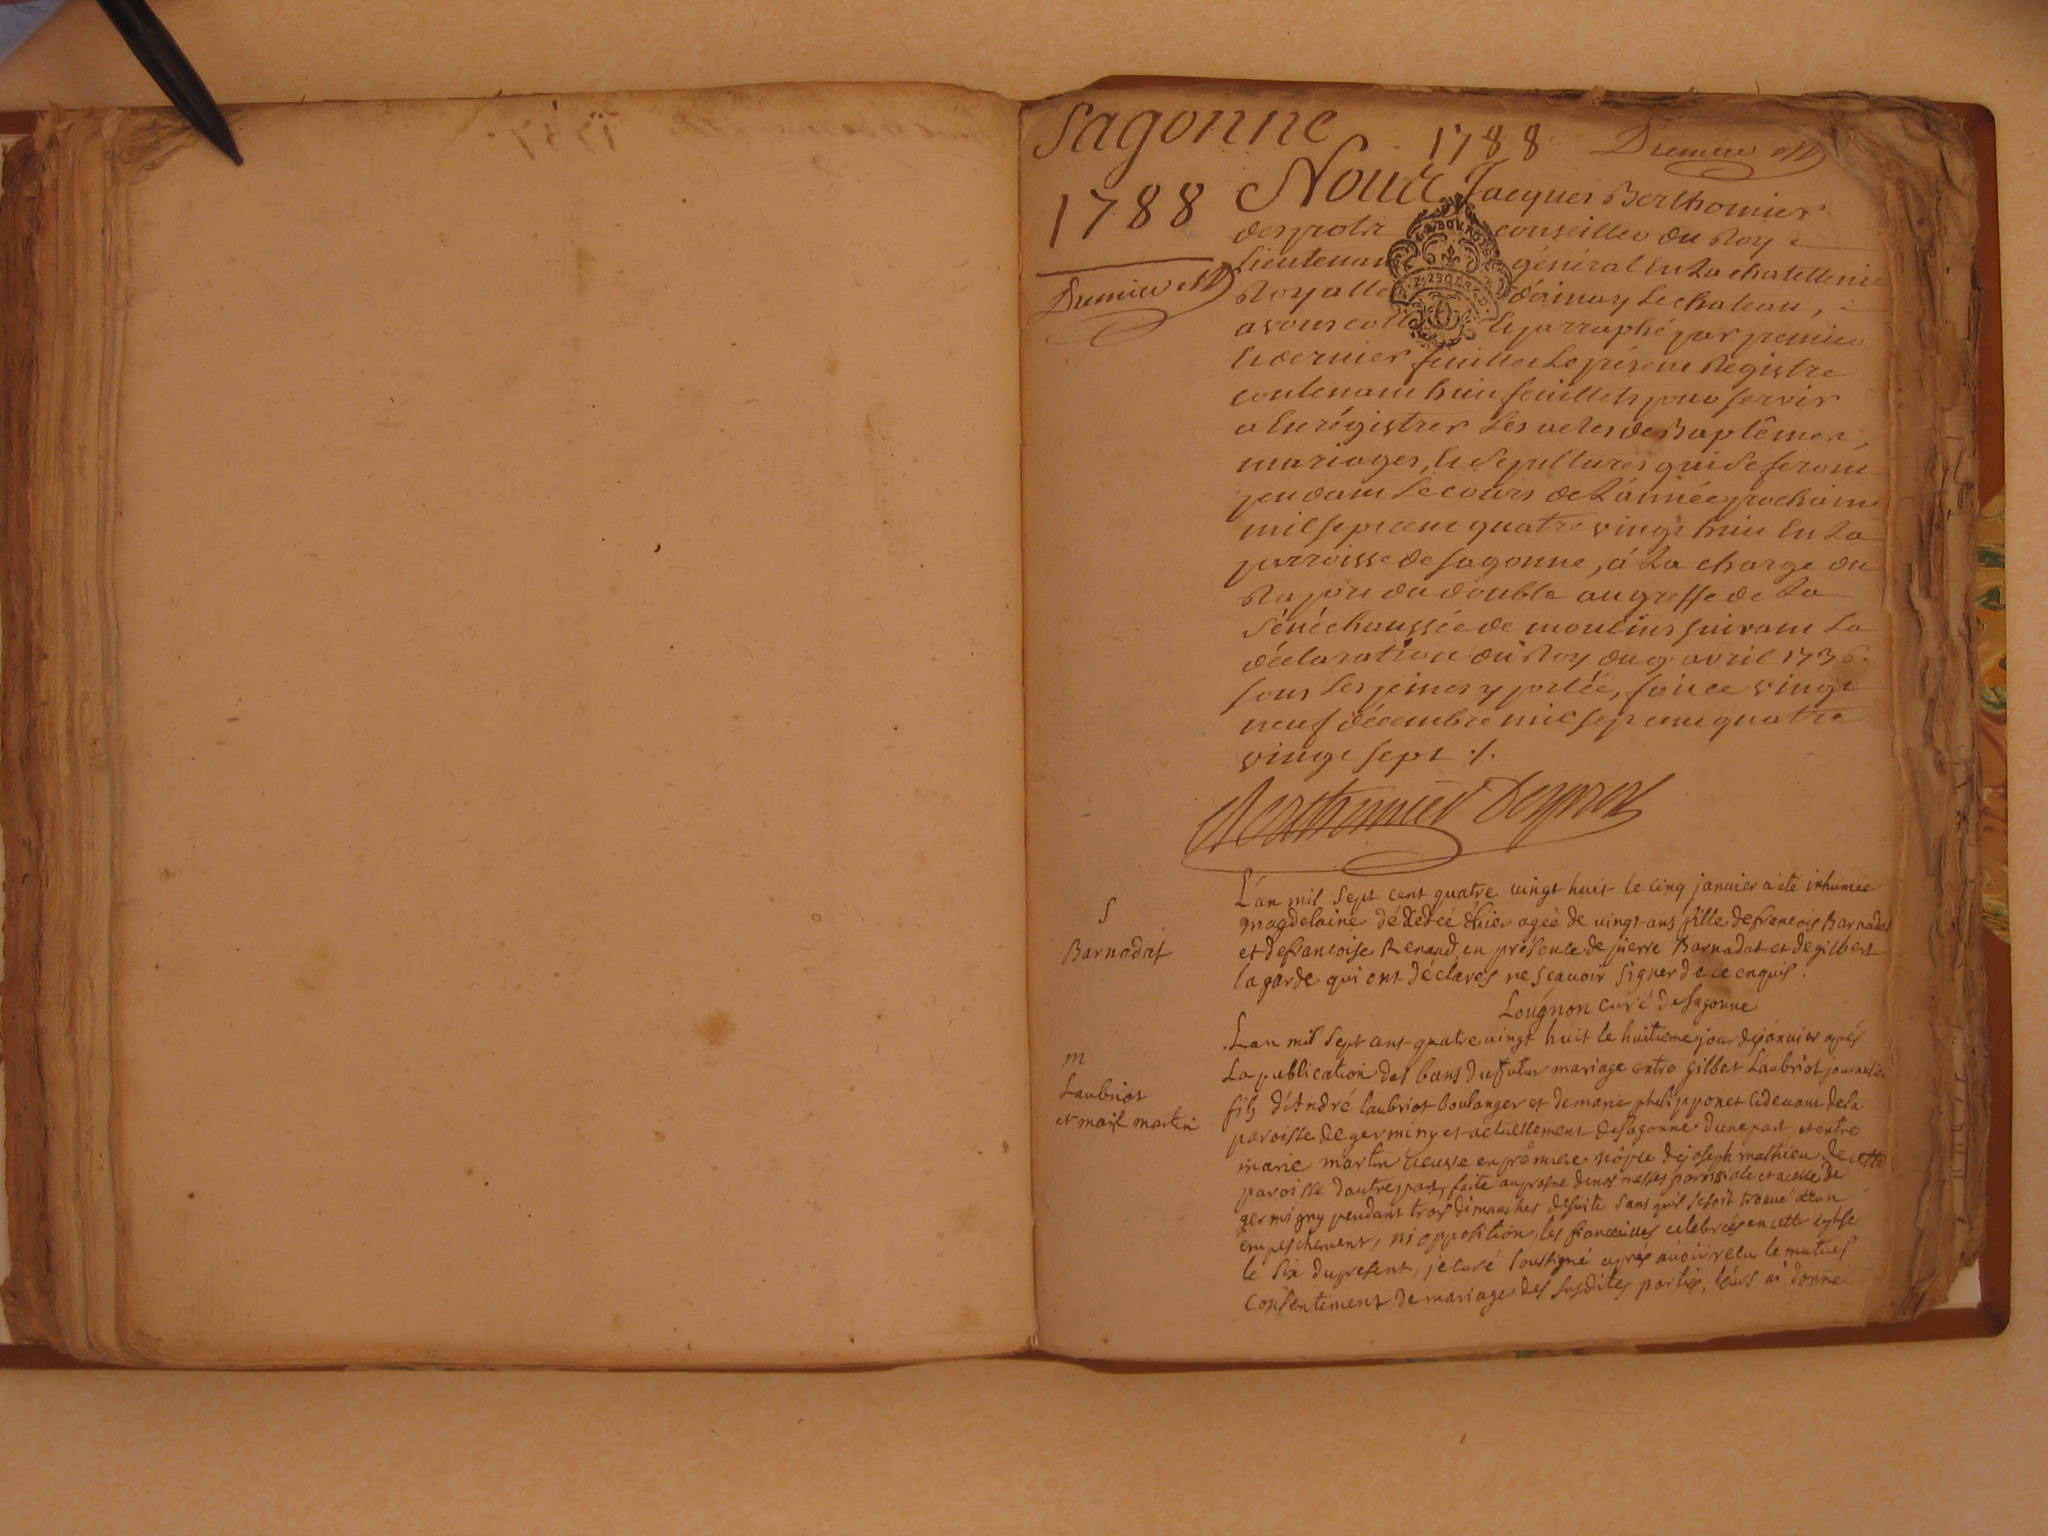 Sagonne
1788
1788
Premier
Premier
Nous Jacques Berthomier
desprots conseiller du Roy
Lieutenant général En La chatellenie
Royalle d'ainay Le chateau,
avons cotté Et parraphé par premier
Et dernier feuillet Le présent Registre
contenant huit feuillets pour servir
a Enrégistrer Les actes de Baptêmes,
mariages, Et Sepultures qui se feront
pendant Le cours de L'année prochaine
mil sept cent quatre vingt huit En La
parroisse de sagonne, á La charge du
Raport du double au greffe de La
sénéchaussée de moulins suivant La
déclaration du Roy du 9 avril 1736.
sous Les peines y portée, fait ce vingt
neuf décembre mil sept cent quatre
vingt sept ./.
Berthomier Desprots
S
Barnadat
L'an mil sept cent quatre vingt huit le cinq janvier a été inhumée
magdelaine décedeé hier ageé de vingt ans fille de francois Barnadat
et de francoise Renaud en présence de pierre Barnadat et de gilbert
lagarde qui ont déclarés ne scavoir signer de ce enquis.
Lougnon curé de Sagonne
m
Laubriot
et marie martin
Lan mil sept cens quatre vingt huit le huitieme jour de janvier après
La publication des bans du futur mariage entre gilbert Laubriot journalier
fils d'André laubriot boulanger et de marie philipponet cidevant de la
paroisse de germiny et actuellement de sagonne d'une part, et entre
marie martin veuve en première nopce de joseph mathieu de cette
paroisse d'autre part, faite au prosne de nos messes paroissiale et a celle de
germigny pendant trois dimanches de suite sans qu'il se soit trouvé aucun
empeschement, ni opposition, les fiancailles celebrées en cette eglise
le six du present, je curé soussigné après avoir recu le mutuel
consentement de mariage des susdites parties, leurs ai donné